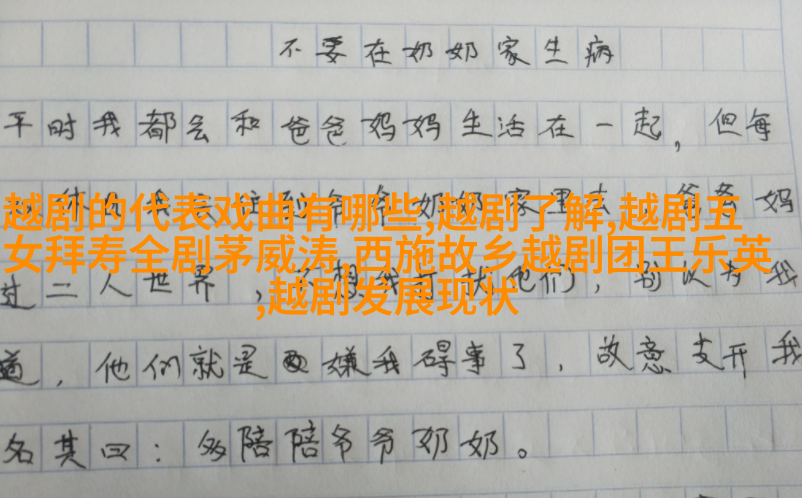 不要在奶奶家生病
平时我都会和爸爸妈妈生活在一起，但每
奶奶家里去，爸爸妈
越剧的代表戏曲有哪些,越剧了解,越剧五
女拜寿全剧茅威涛,西施故乡越剧团王乐英
,越剧发展现状
过二人世界，他们，别以为我
道，他们就是嫌我碍事了，故意支开我
名其曰：多陪陪爷爷奶奶。